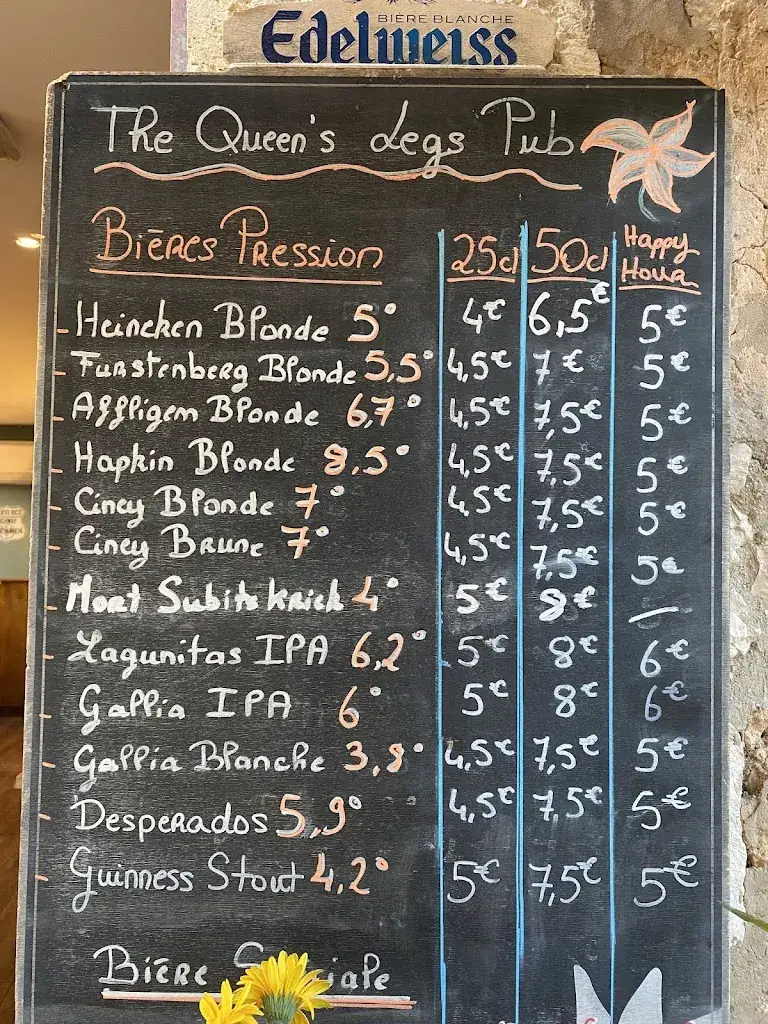 BIÈRE BLANCHE
Edelweiss
The Queen's Legs Pub
Bières Pression 25cl 50cl Happy Hour
- Heineken Blonde 5° 4€ 6,5€ 5€
- Furstenberg Blonde 5,5° 4,5€ 7€ 5€
- Affligem Blonde 6,7° 4,5€ 7,5€ 5€
- Hapkin Blonde 8,5° 4,5€ 7,5€ 5€
- Ciney Blonde 7° 4,5€ 7,5€ 5€
- Ciney Brune 7° 4,5€ 7,5€ 5€
- Mort Subite Kriek 4° 5€ 8€ –
- Lagunitas IPA 6,2° 5€ 8€ 6€
- Gallia IPA 6° 5€ 8€ 6€
- Gallia Blanche 3,8° 4,5€ 7,5€ 5€
- Desperados 5,9° 4,5€ 7,5€ 5€
- Guinness Stout 4,2° 5€ 7,5€ 5€
Bière